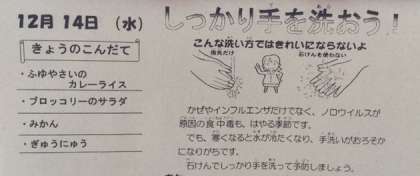 12月 14日 (水)
しっかり手を洗おう!
きょうのこんだて
・ふゆやさいの
カレーライス
・ブロッコリーのサラダ
・みかん
・ぎゅうにゅう
こんな洗い方ではきれいにならないよ
指先だけ
石けんを使わない
かぜやインフルエンザだけでなく、ノロウイルスが
原因の食中毒も、はやる季節です。
でも、寒くなると水が冷たくなり、手洗いがおろそか
になりがちです。
石けんでしっかり手を洗って予防しましょう。